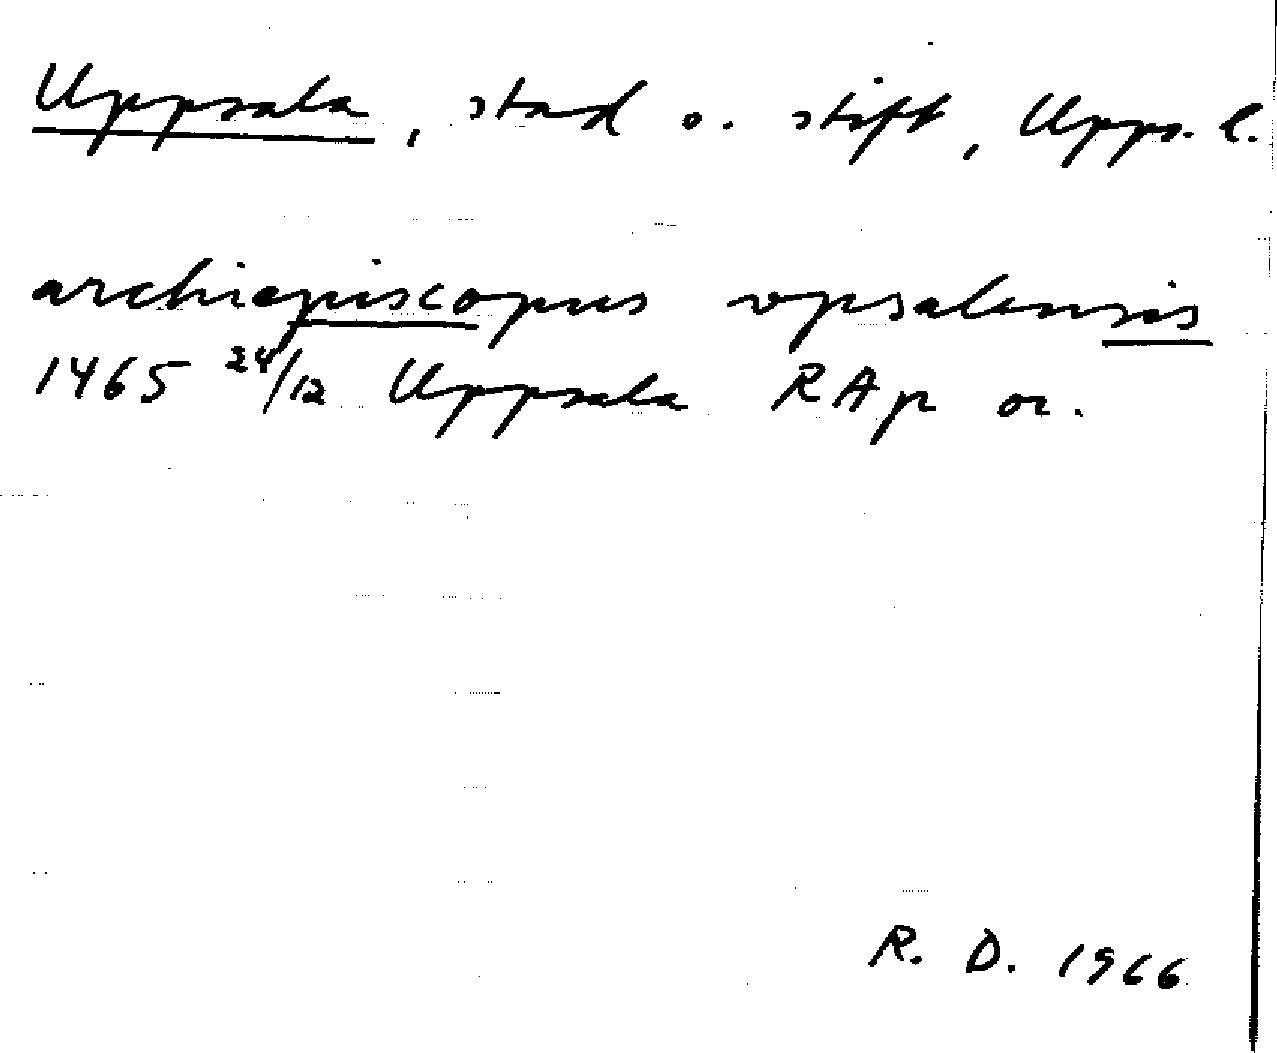 Uppsala, stad o. stift, Upps. l.
archiepiscopus vpsalensis
1465 24/12 Uppsala RAp or.
R. D. 1966